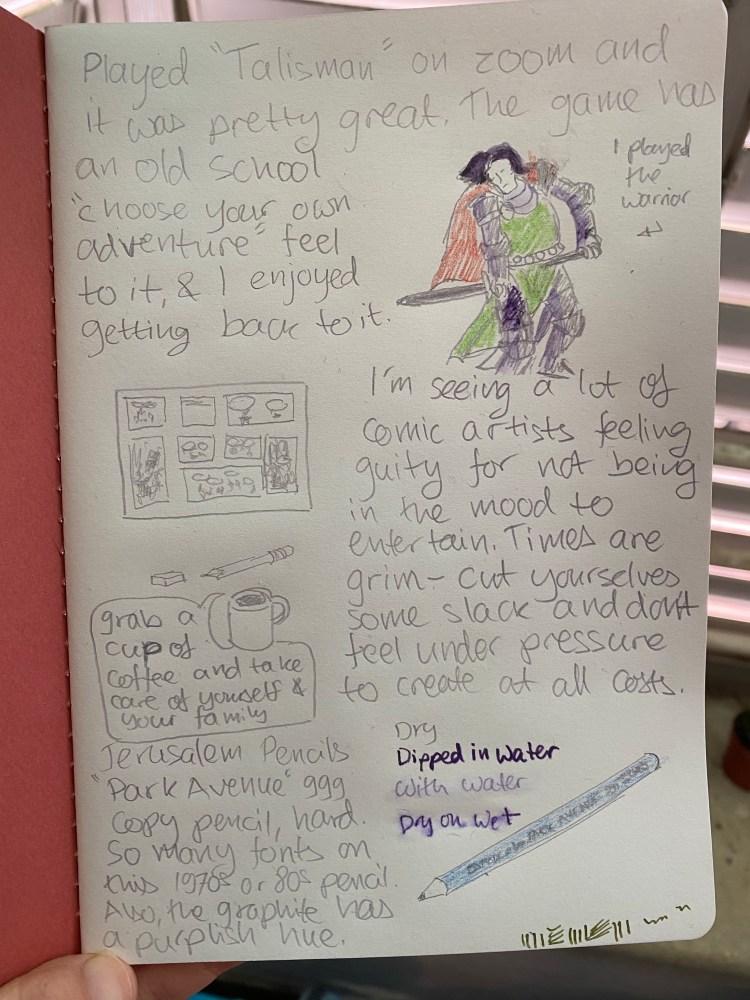 Played "Talisman" on zoom and
it was pretty great. The game has
an old school
"choose your own
adventure" feel
to it, & I enjoyed
getting back to it.
I played
the
warrior
I'm seeing a lot of
comic artists feeling
guity for not being
in the mood to
entertain. Times are
grim - cut yourselves
some slack and dont
feel under pressure
to create at all costs.
grab a
cup of
coffee and take
care of yourself &
your family
Jerusalem Pencils
"Park Avenue" 999
copy pencil, hard.
So many fonts on
this 1970s or 80s pencil.
Also, the graphite has
a purplish hue.
Dry
Dipped in water
With water
Dry on wet